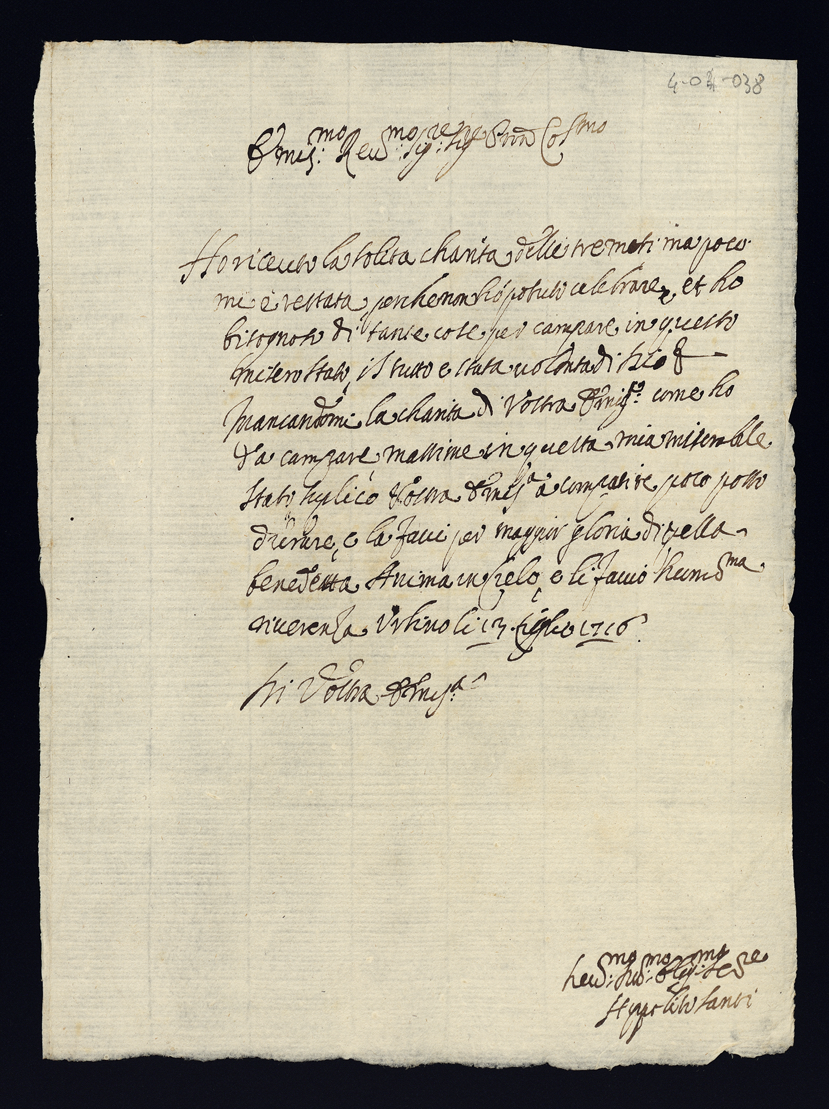 4-04-038
Emin:mo Reu:mo Sig:re Sig:re Pnn Col:mo
Ho riceuto la solita charita delle tre meti ma poco
mi è restata, perche non hò potuto celebrare, et ho
bisogno di tante cose per campare in questo
misero stato, il tutto e stata uolonta di Dio
Mancandomi la charita di Vostra Emin:a come ho
da campare massime in questa mia miserabile
stato suplico Vostra Emin:a a compatire poco posso
durare, e la facci per maggior gloria di quella
benedetta Anima in Cielo, e li faccio humil:ma
riuerenza Urbino li 13 luglio 1716
Di Vostra Emin:a
Hippolito Santi